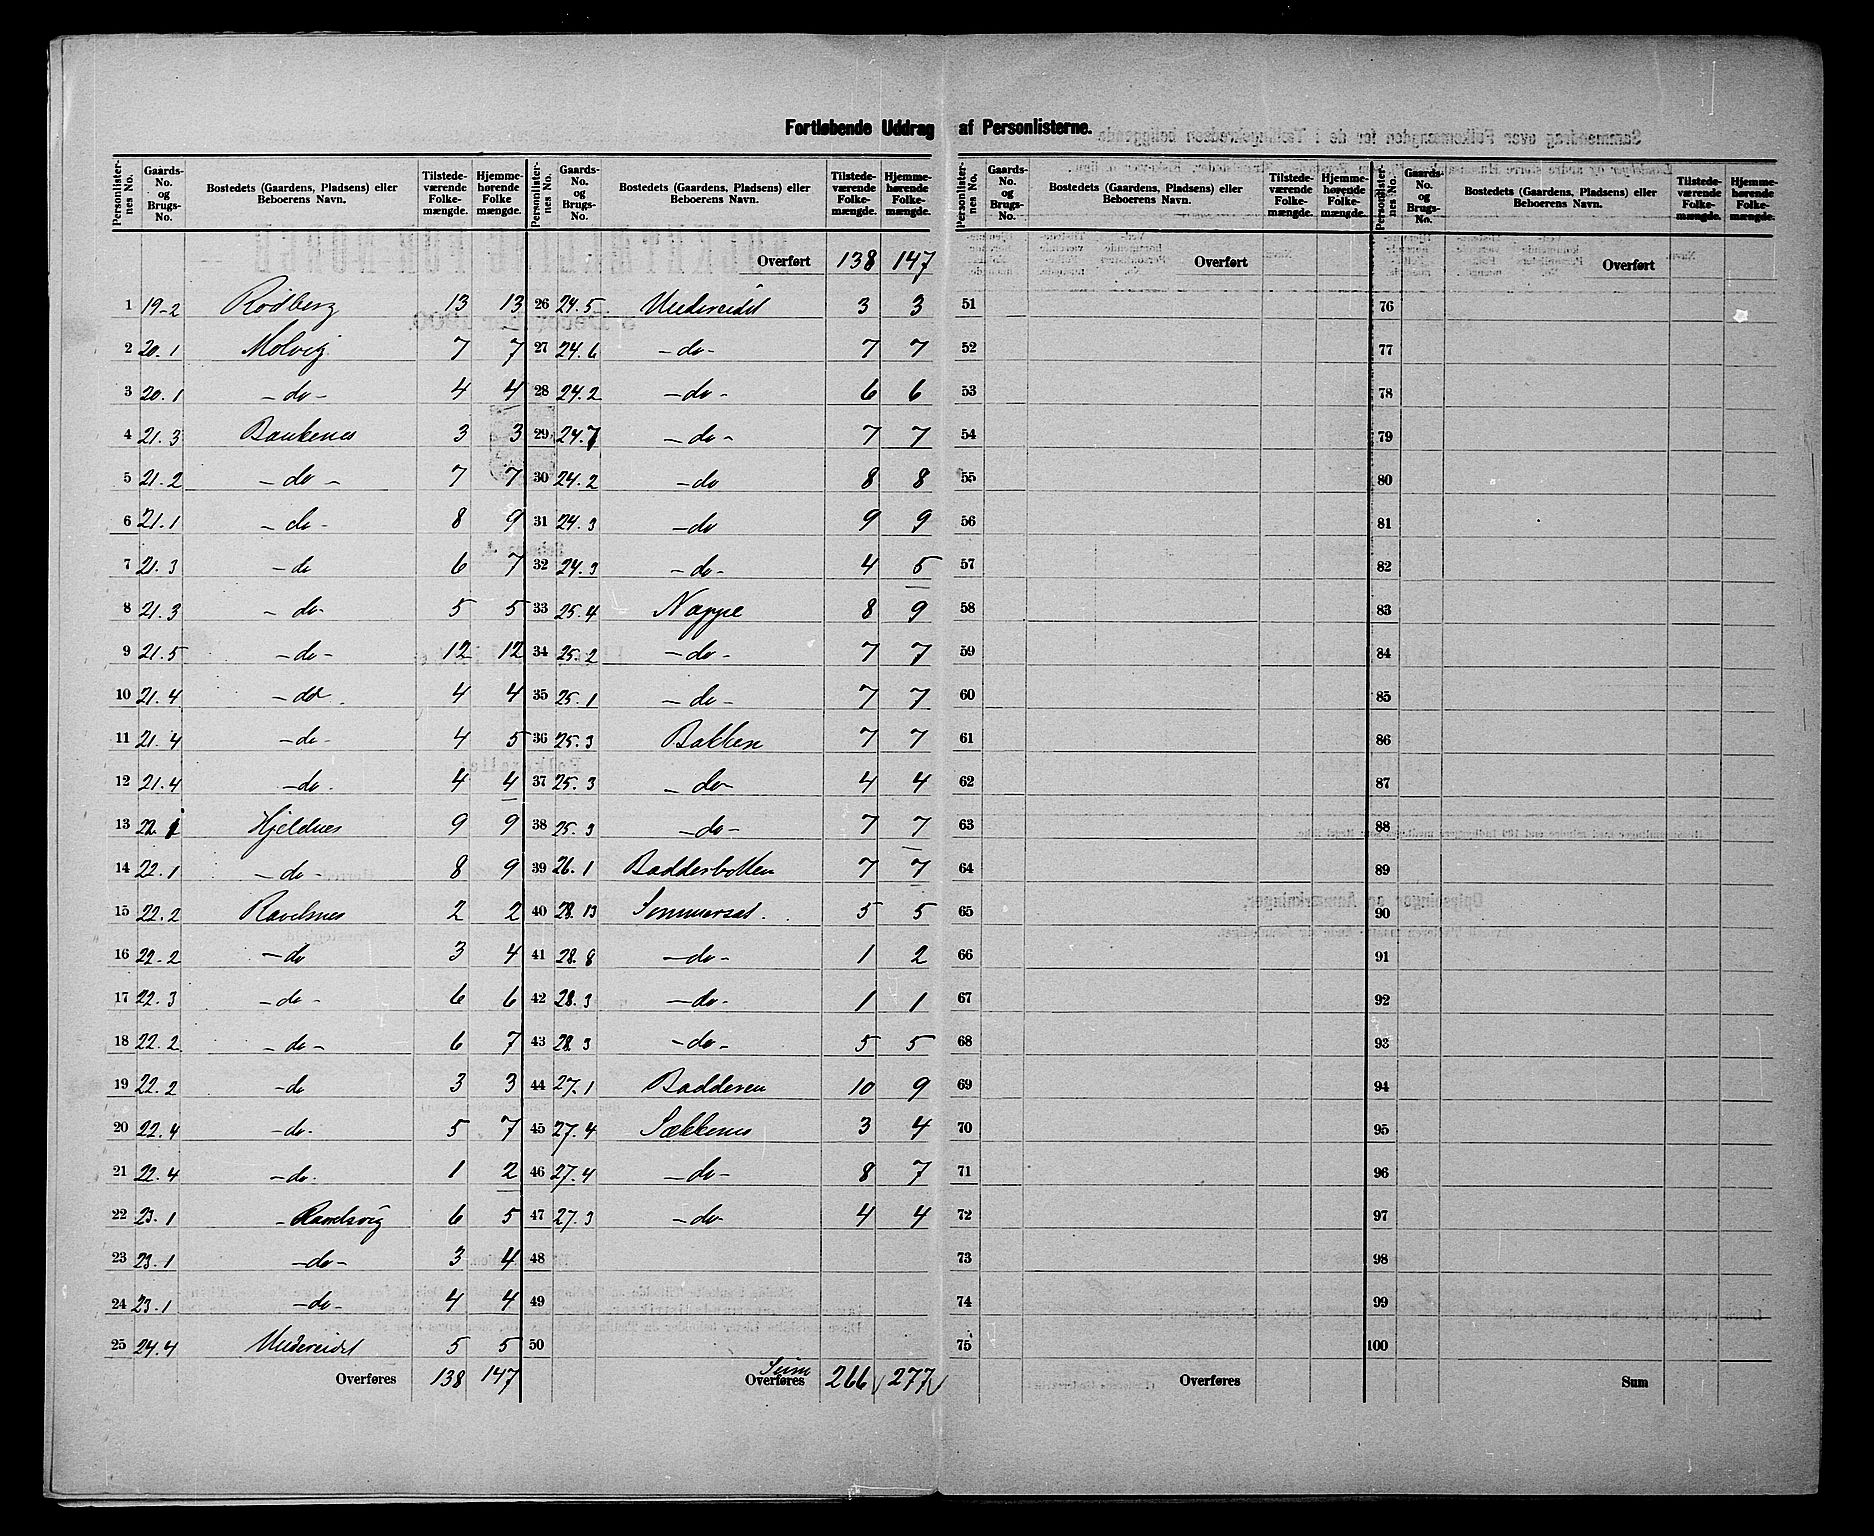 Fortløbende Uddrag af Personlisterne.
Personlister-nes No. | Gaards-No. og Brugs-No. | Bostedets (Gaardens, Pladsens) eller Beboerens Navn. | Tilstede-værende Folke-mængde. | Hjemme-hørende Folke mængde.
1 19-2 Rødberg 13 13
2 20.1 Molvig 7 7
3 20.1 -do- 4 4
4 21.3 Baukenes 3 3
5 21.2 -do- 7 7
6 21.1 -do- 8 9
7 21.3 -do 6 7
8 21.3 -do- 5 5
9 21.5 -do- 12 12
10 21.4 -do- 4 4
11 21.4 -do- 4 5
12 21.4 -do. 4 4
13 22.1 Hjeldnes 9 9
14 22.1 -do- 8 9
15 22.2 Ravelsnes 2 2
16 22.2 -do 3 4
17 22.3 -do- 6 6
18 22.2 -do- 6 7
19 22.2 -do 3 3
20 22.4 -do- 5 7
21 22.4 -do. 1 2
22 23.1 -Ravelsvig 6 5
23 23.1 -do- 3 4
24 23.1 -do- 4 4
25 24.4 Undereidet 5 5
Overføres 138 147
Personlister-nes No. | Gaards-No. og Brugs-No. | Bostedets (Gaardens, Pladsens) eller Beboerens Navn. | Tilstede-værende Folke-mængde. | Hjemme-hørende Folke-mængde.
Overført 138 147
26 24.5 Undereidet 3 3
27 24.6 -do- 7 7
28 24.2 -do- 6 6
29 24.7 -do- 7 7
30 24.2 -do 8 8
31 24.3 -do 9 9
32 24.3 -do- 4 5
33 25.4 Næppe 8 9
34 25.2 -do- 7 7
35 25.1 -do- 7 7
36 25.3 Bakken 7 7
37 25.3 -do- 4 4
38 25.3 -do- 7 7
39 26.1 Badderbotten 7 7
40 28.13 Sommerset. 5 5
41 28.8 -do- 1 2
42 28.3 -do- 1 1
43 28.3 -do- 5 5
44 27.1 Badderen 10 9
45 27.4 Sækkenes 3 4
46 27.4 -do- 8 7
47 27.3 -do- 4 4
48
49
50
Sum
Overføres 266 277
Personlister-nes No. | Gaards-No. og Brugs-No. | Bostedets (Gaardens, Pladsens) eller Beboerens Navn. | Tilstede-værende Folke-mængde. | Hjemme-hørende Folke-mængde.
Overført
51
52
53
54
55
56
57
58
59
60
61
62
63
64
65
66
67
68
69
70
71
72
73
74
75
Overføres
Personlister-nes No. | Gaards-No. og Brugs-No. | Bostedets (Gaardens, Pladsens) eller Beboerens Navn. | Tilstede-værende Folke-mængde. | Hjemme-hørende Folke-mængde.
Overført
76
77
78
79
80
81
82
83
84
85
86
87
88
89
90
91
92
93
94
95
96
97
98
99
100
Sum